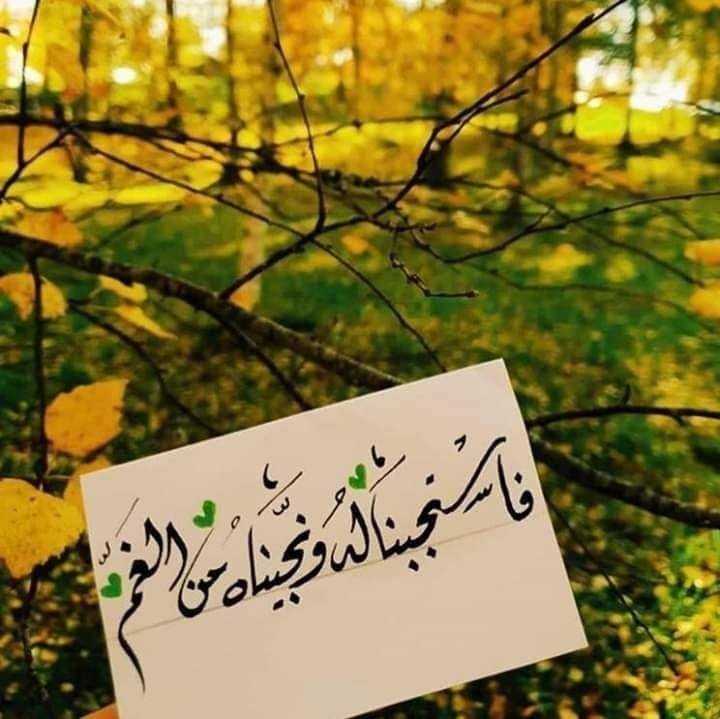 فاستجبنا له ونجّيناه من الغمّ